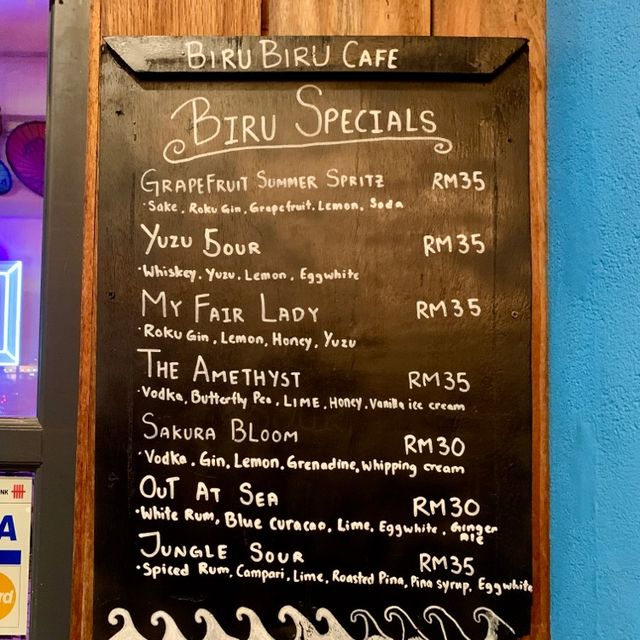 BIRU BIRU CAFE
BIRU SPECIALS
GRAPEFRUIT SUMMER SPRITZ RM35
·Sake, Roku Gin, Grapefruit, Lemon, Soda
YUZU SOUR RM35
·Whiskey, Yuzu, Lemon, Eggwhite
MY FAIR LADY RM35
·Roku Gin, Lemon, Honey, Yuzu
THE AMETHYST RM35
·Vodka, Butterfly Pea, LIME, Honey, Vanilla ice cream
SAKURA BLOOM RM30
·Vodka, Gin, Lemon, Grenadine, whipping cream
OUT AT SEA RM30
·White Rum, Blue Curacao, Lime, Eggwhite, Ginger
ale
JUNGLE SOUR RM35
·Spiced Rum, Campari, Lime, Roasted Pina, Pina syrup, Eggwhite